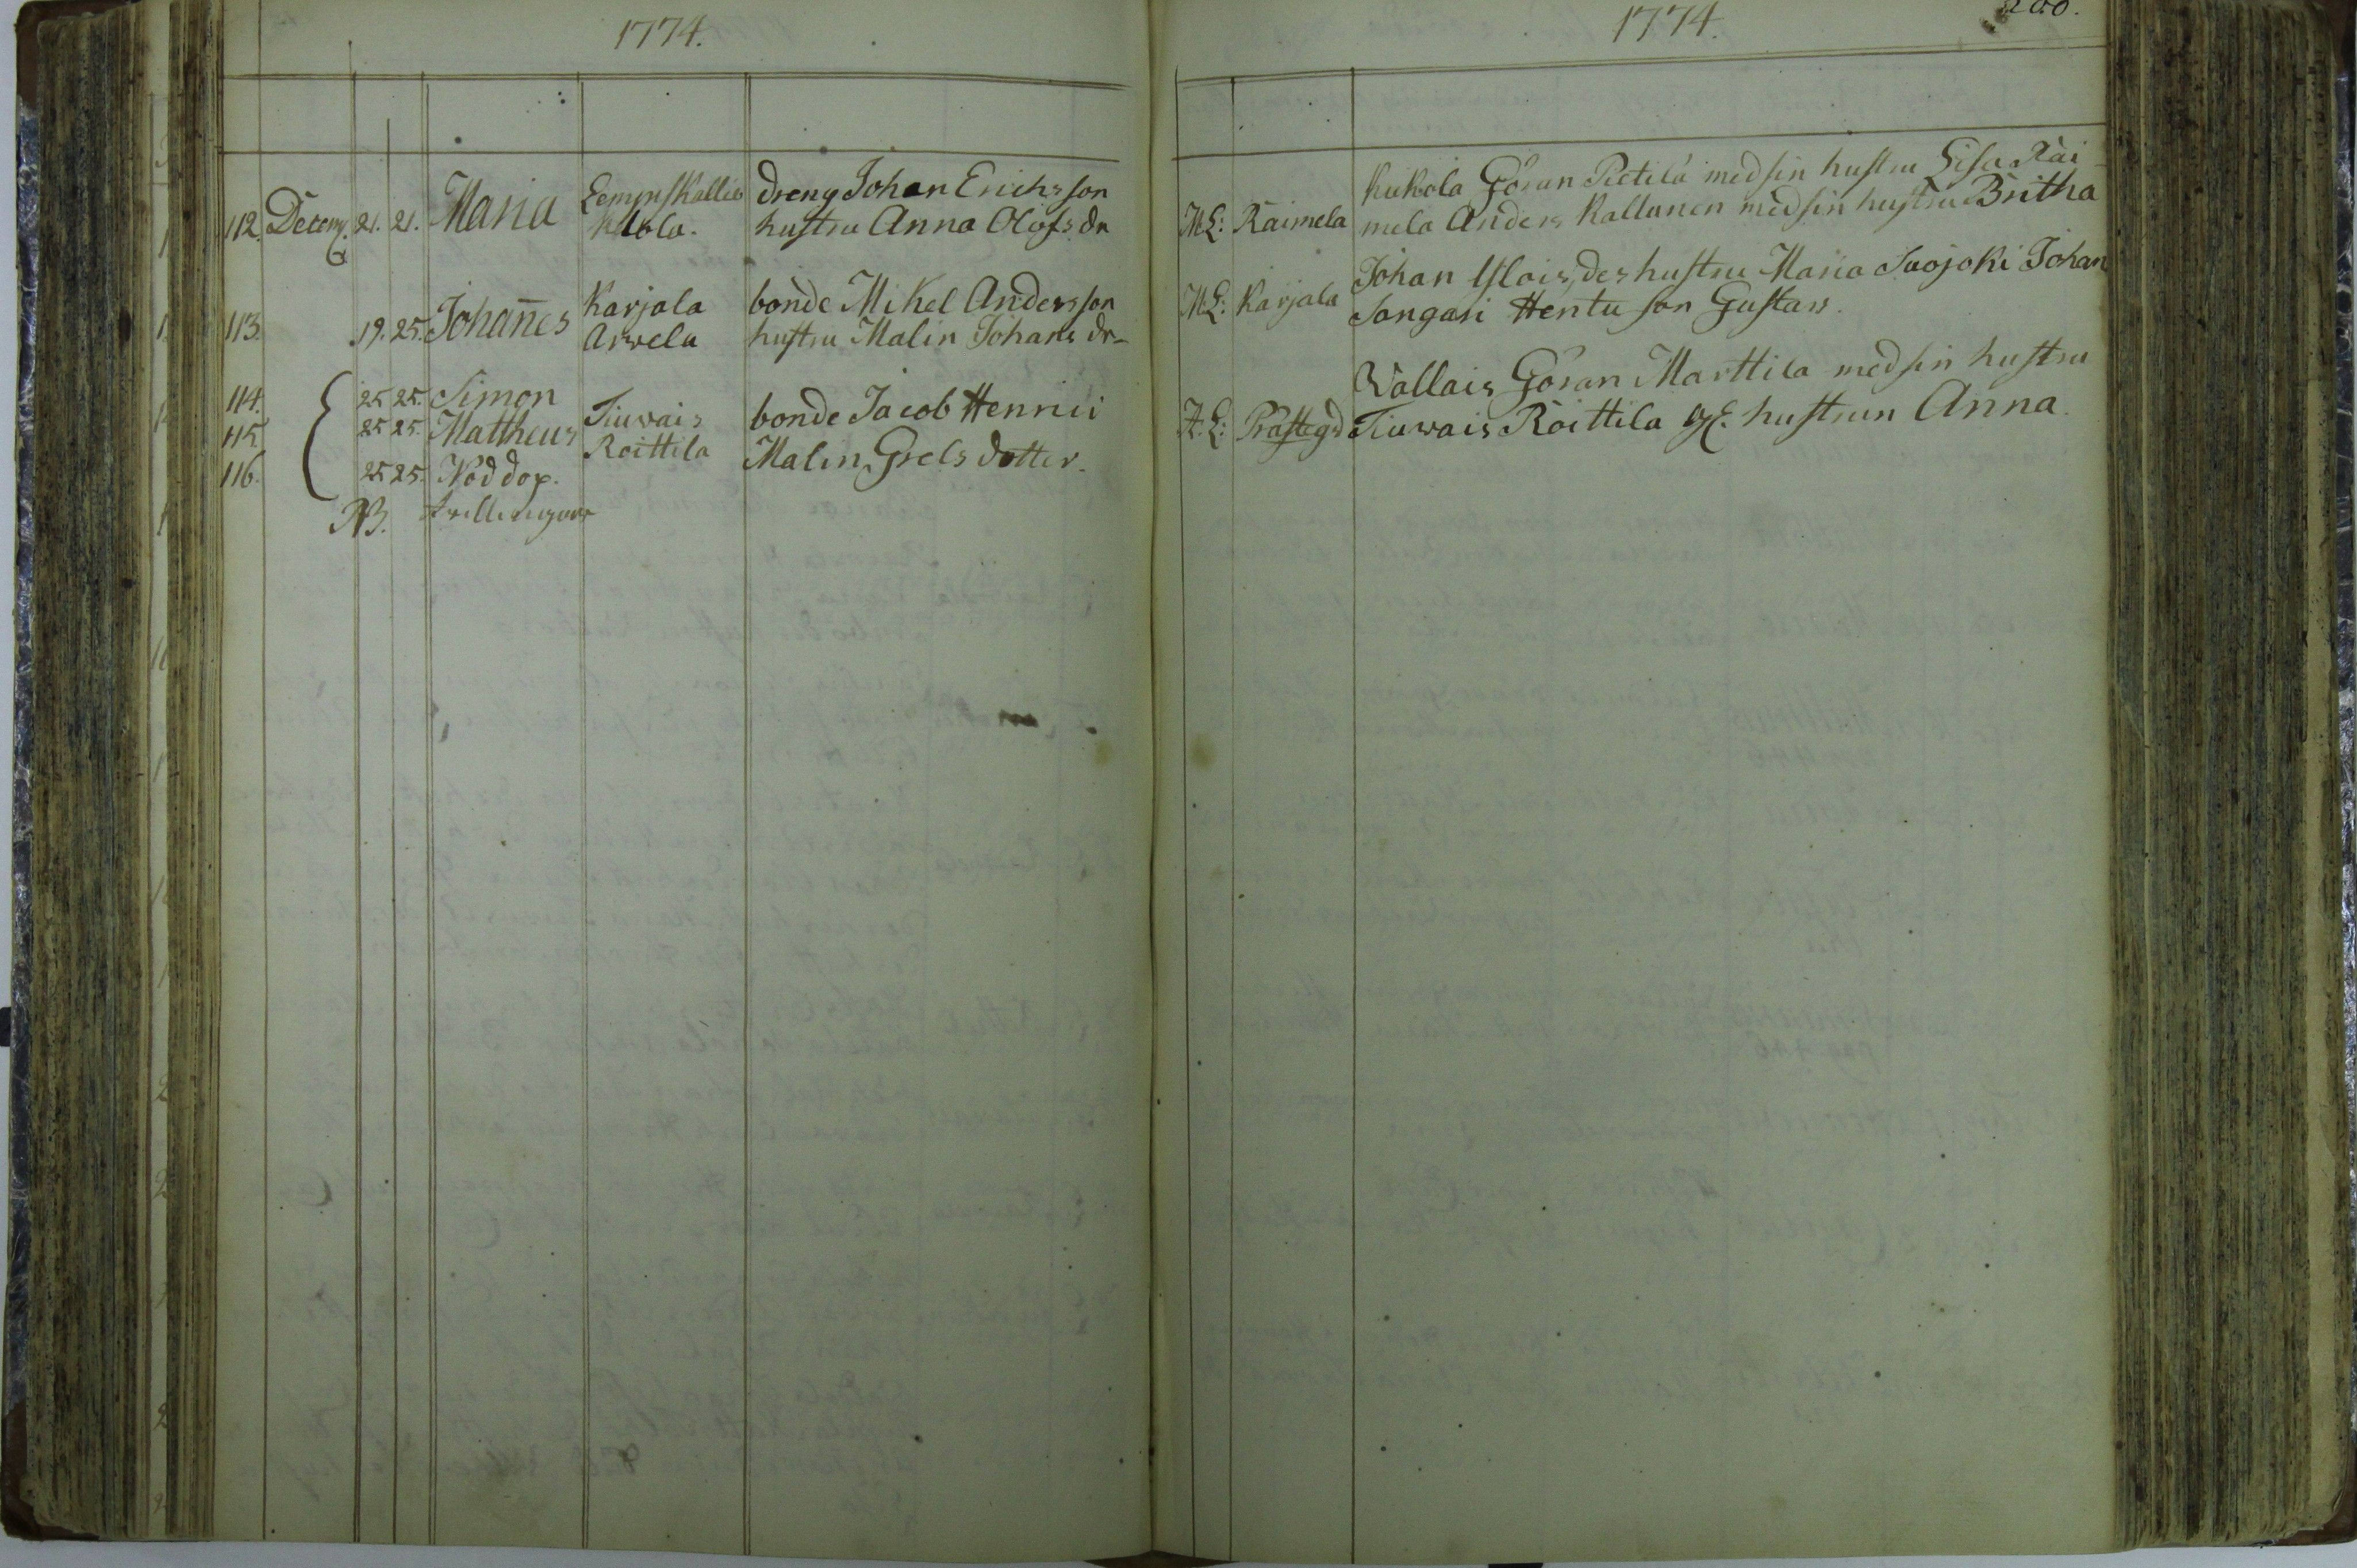 1774.
112. Decemb. 21. 21. Maria
Kukola. dreng Johan Erichsson
hustru Anna Olofs dr
113. 19. 25. Johanes Karjala bonde Mikel Andersson
Arwela hustru Malin Johans dr
114. 25 25. Simon
115. 25 25. Mattheus Tiuwais bonde Jacob Henrici
Roittila Malin Grels dotter.
116. 25 25. Nöddop.
NB. trillingar
1774.
200.
Kukola Göran Pietilä med sin hustru Lisa Räi
M. L: Räimela mela Anders Kallunen med sin hustru Britha
Johan Uslais, des hustru Maria Suojoki Johan
M. L: Karjala Songari Hentu son Gustav.
Wallais Göran Marttila med sin hustru
A. L: Prästegd Tiuwais Röittila GE. hustrun Anna.